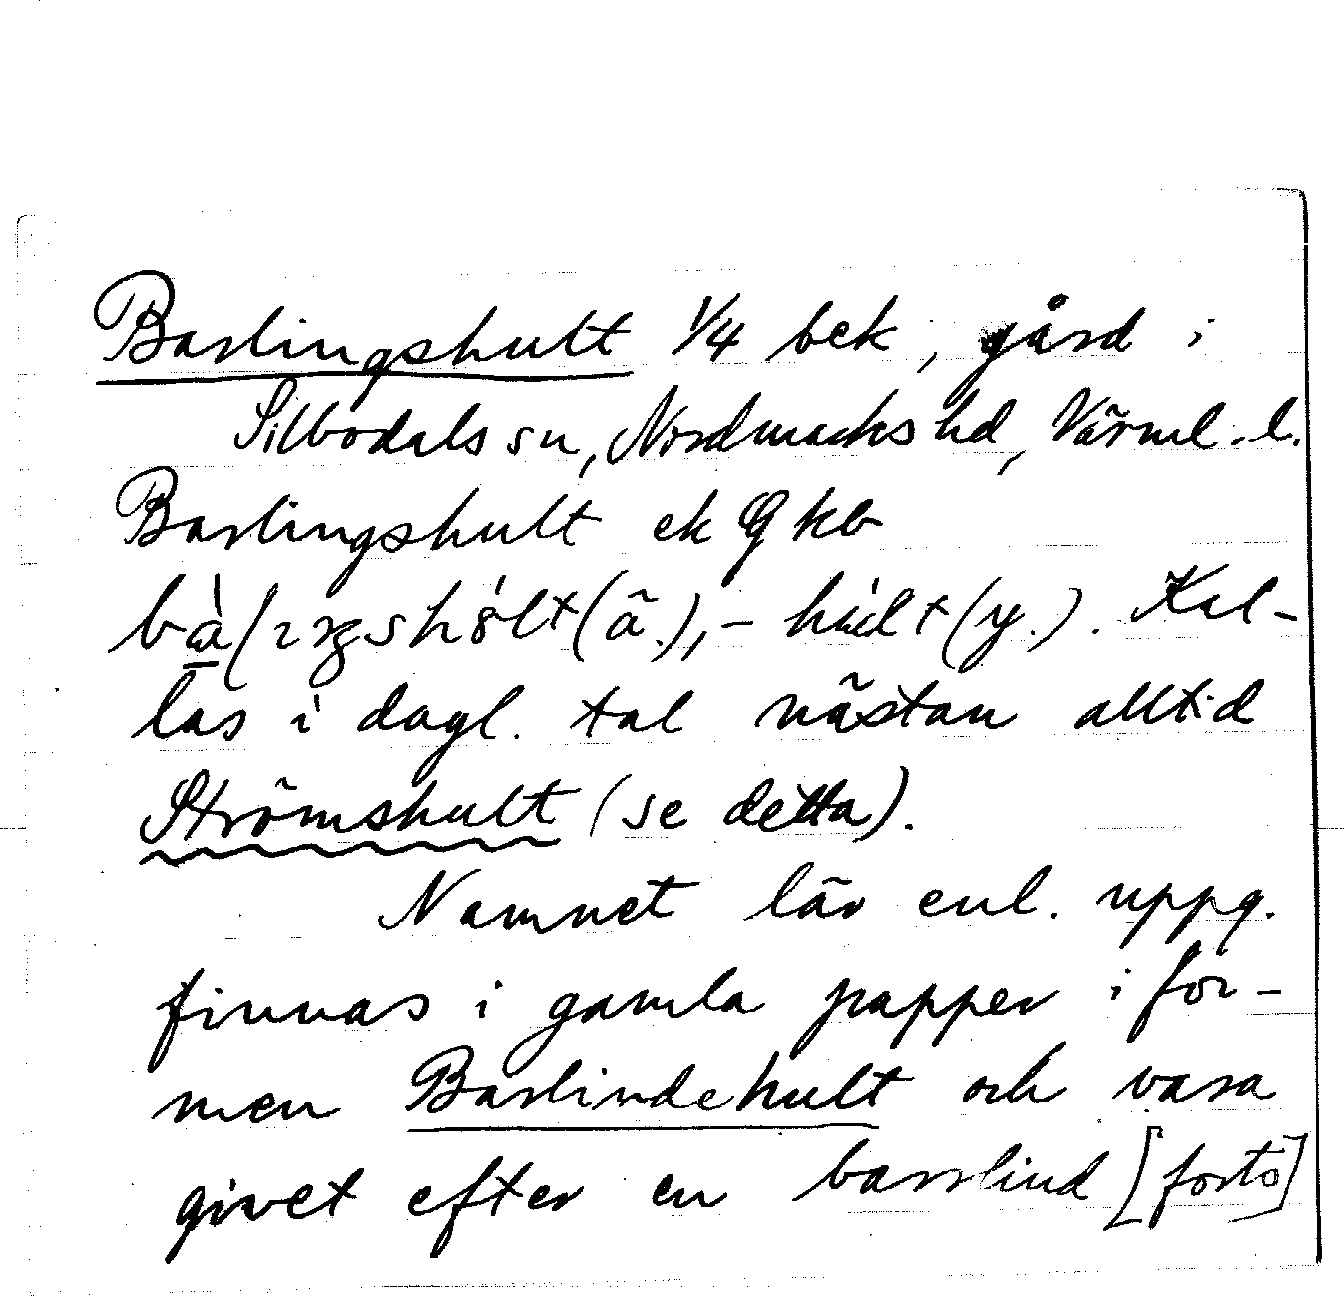 Barlingshult 1/4 bek, gård i
Silbodals sn, Nordmarks hd, Värml. l.
Barlingshult ek G kb
(ā.), – hult (y.). Kal-
las i dagl. tal nästan alltid
Strömshult (se detta).
Namnet lär enl. uppg.
finnas i gamla papper i for-
men Barlindehult och vara
givet efter en barrlind [forts]